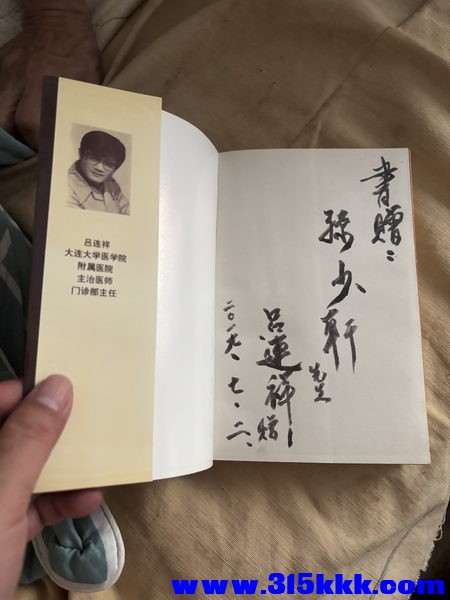 吕连祥
大连大学医学院
附属医院
主治医师
门诊部主任
書赠：
孫少軒先生
吕連祥赠
二〇一九、七、二、
www.315kkk.com